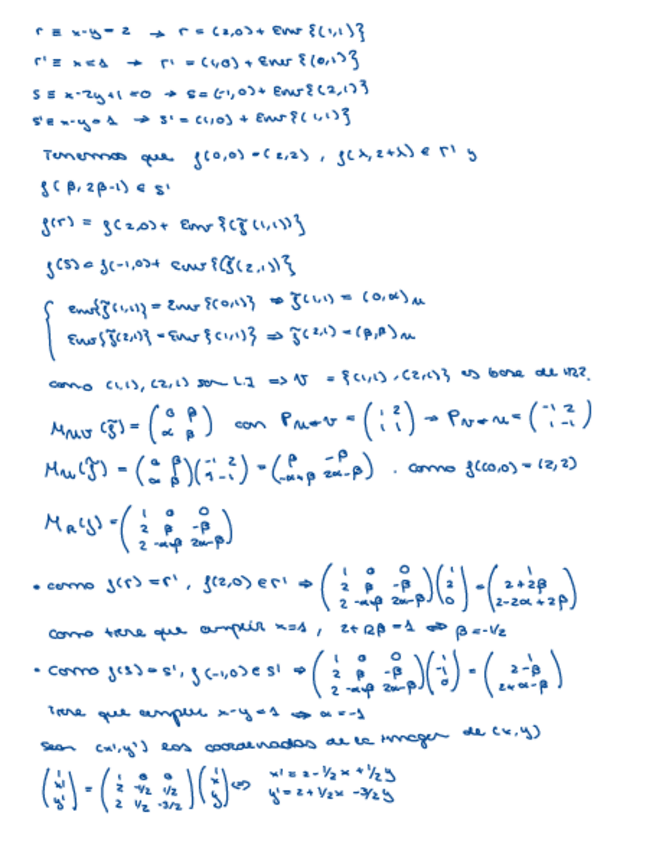 r ≡ x-y = 2 → r = (2,0) + Env {(1,1)}
r' ≡ x=1 → r' = (1,0) + Env {(0,1)}
s ≡ x-2y+1=0 → s=(-1,0)+ Env{(2,1)}
s' ≡ x-y=1 → s' = (1,0) + Env{(1,1)}
Tenemos que f(0,0) = (2,2) , f(λ,2+λ) ∈ r' y
f(β, 2β-1) ∈ s'
f(r) = f(2,0) + Env {(f̃(1,1))}
f(s) = f(-1,0)+ Env{(f̃(2,1)}
{ env{f̃(1,1)} = Env{(0,1)} ⇒ f̃(1,1) = (0,α)u
Env{f̃(2,1)} = Env{(1,1)} ⇒ f̃(2,1) = (β,β)u
como (1,1), (2,1) son L.I => V = {(1,1), (2,1)} es base de R2.
M_UV (f̃) = (0 β / α β) con P_U←V = (1 2 / 1 1) → P_V←U = (-1 2 / 1 -1)
M_U(f̃) = (0 β / α β)(-1 2 / 1 -1) = (β -β / -α+β 2α-β) . como f((0,0) = (2,2)
M_R(f) = (1 0 0 / 2 β -β / 2 -α+β 2α-β)
• como f(r) = r', f(2,0) ∈ r' ⇒ (1 0 0 / 2 β -β / 2 -α+β 2α-β)(1 / 2 / 0) = (1 / 2+2β / 2-2α+2β)
como tiene que cumplir x=1, 2+2β=1 ⇔ β=-1/2
• como f(s) = s', f(-1,0) ∈ s' ⇒ (1 0 0 / 2 β -β / 2 -α+β 2α-β)(1 / -1 / 0) = (1 / 2-β / 2+α-β)
Tiene que cumplir x-y=1 ⇔ α=-1
sean (x',y') las coordenadas de la imagen de (x,y)
(1 / x' / y') = (1 0 0 / 2 -1/2 1/2 / 2 1/2 -3/2)(1 / x / y) ⇔ x' = 2 - 1/2 x + 1/2 y
y' = 2 + 1/2x - 3/2 y